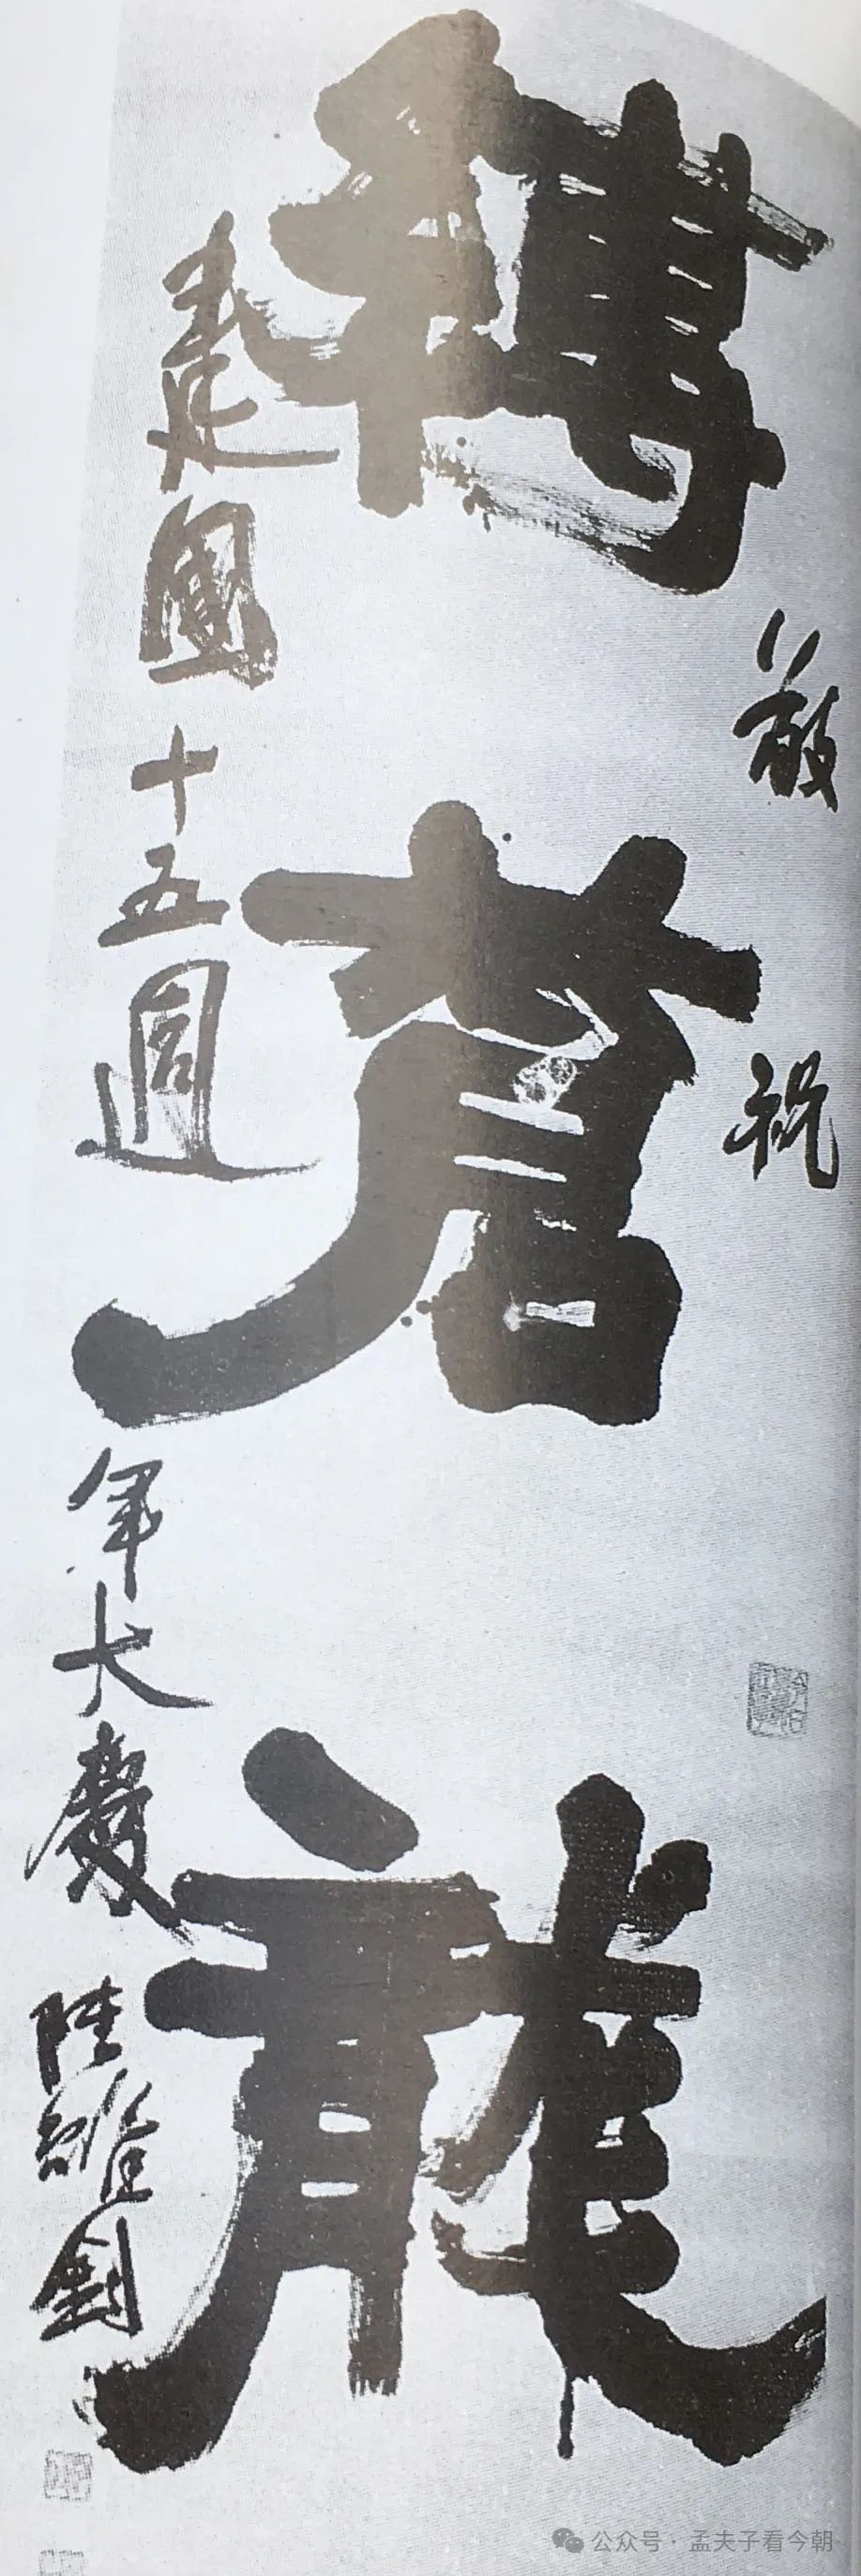 敬祝
缚苍龙
建国十五週年大慶
陸維釗
公众号·孟夫子看今朝